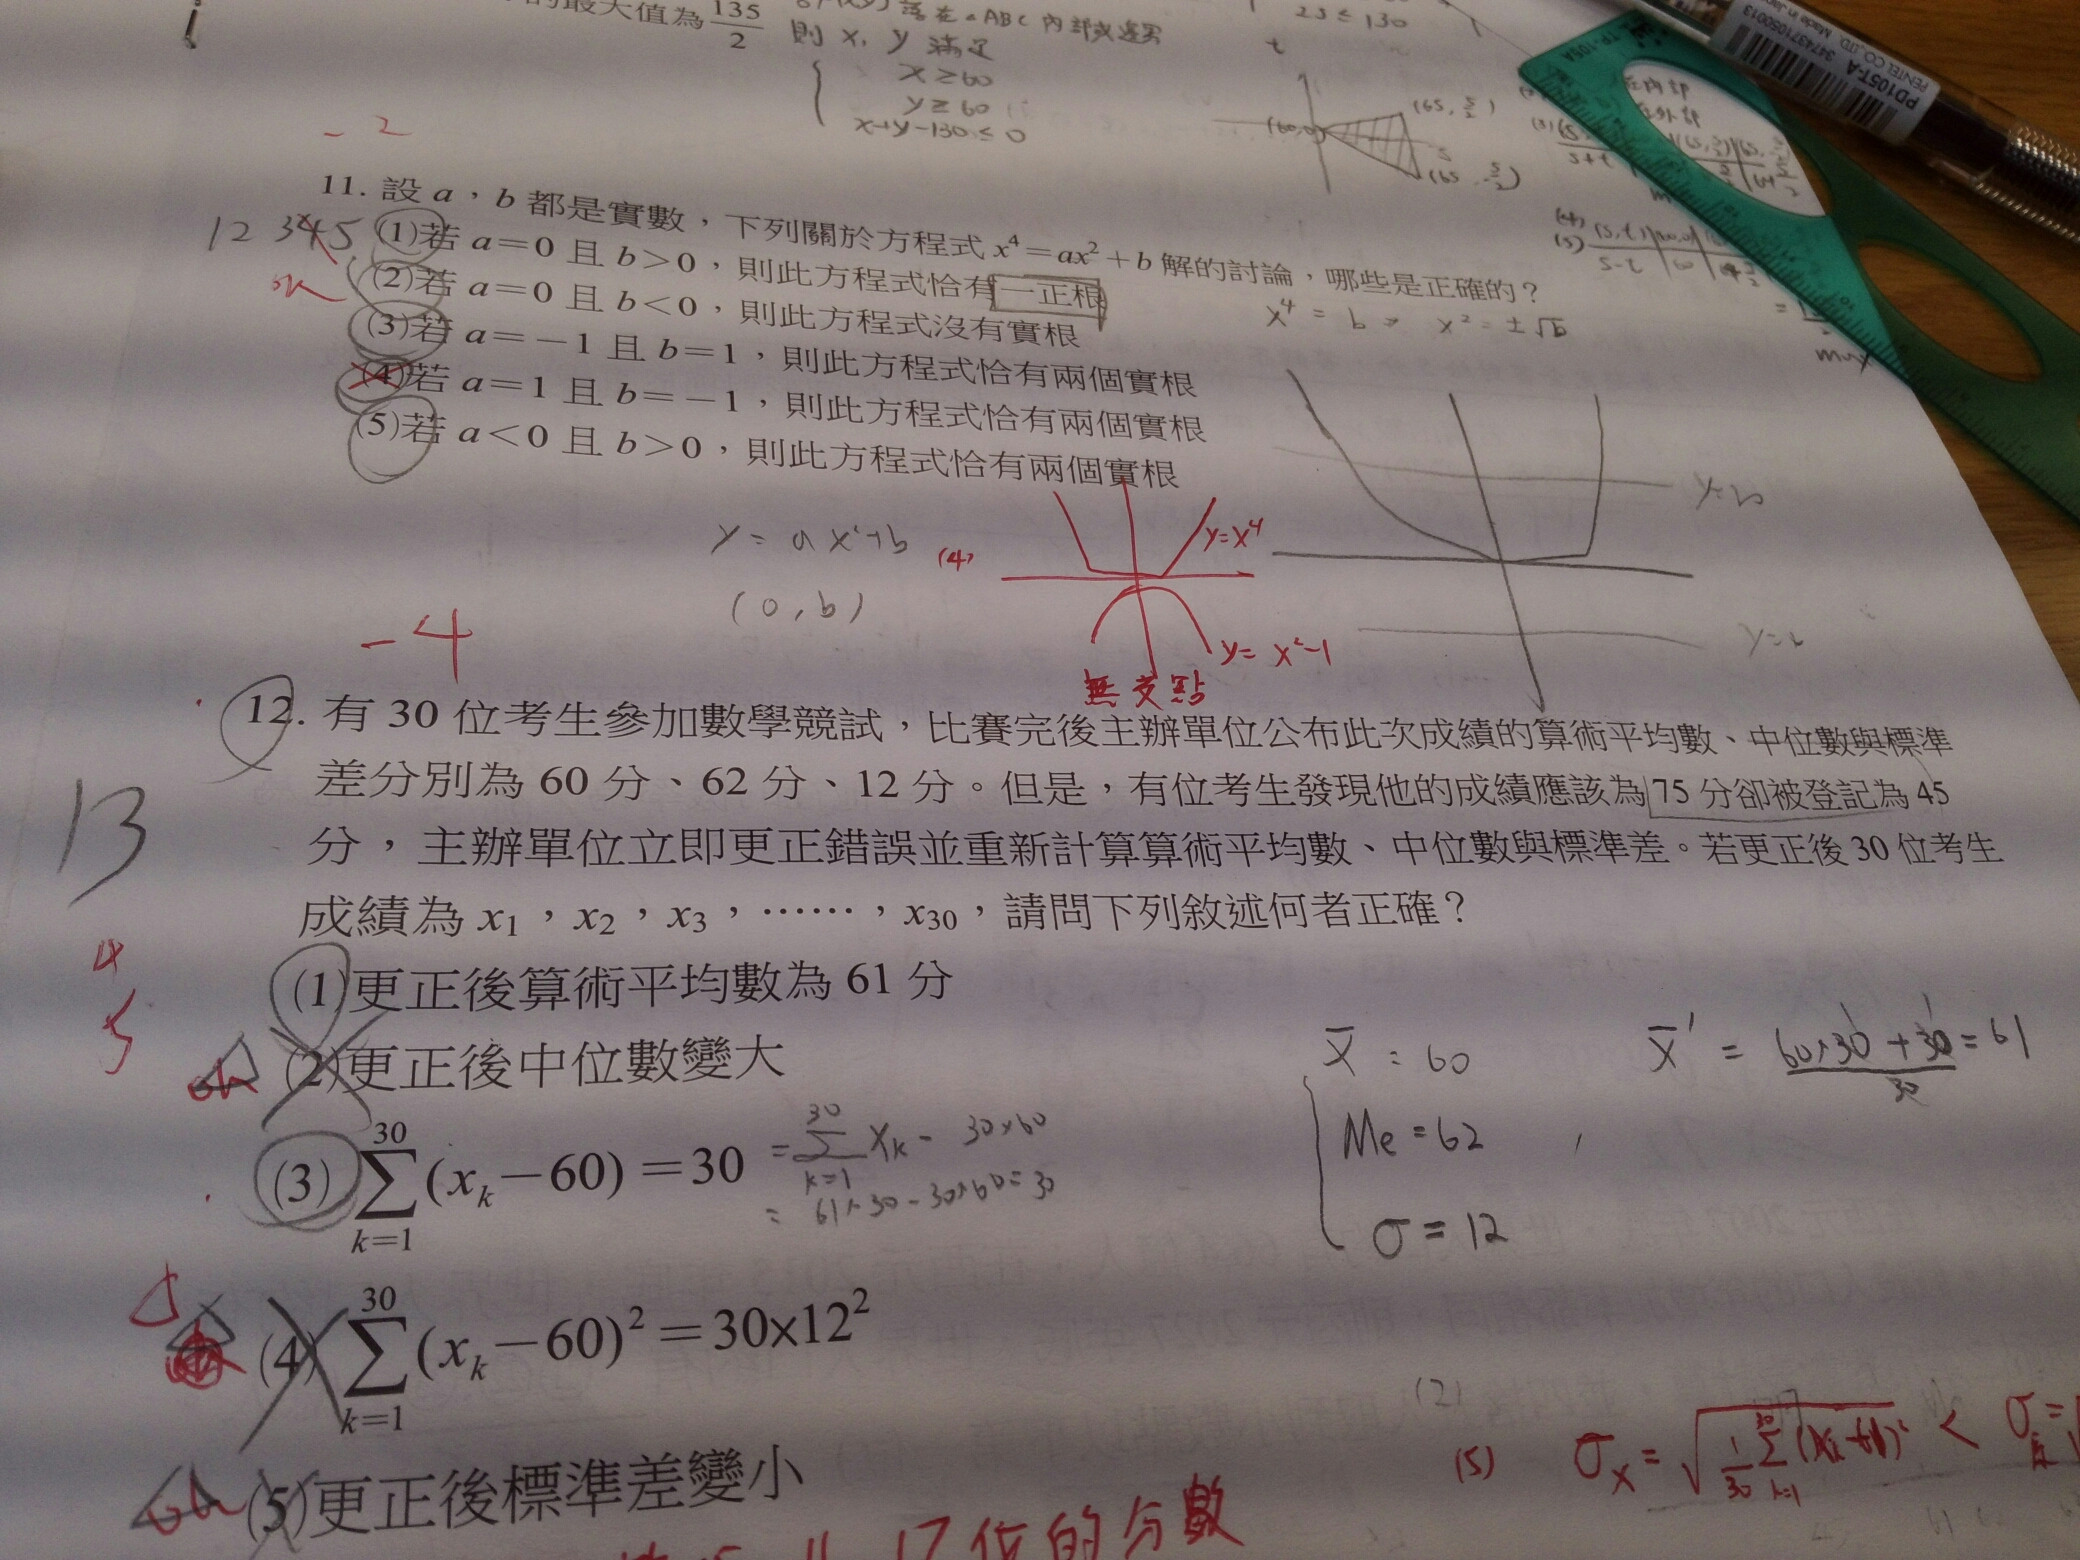 的最大值為 135/2
落在△ABC 內部或邊界
則 x, y 滿足
x ≥ 60
y ≥ 60
x+y-130 ≤ 0
≤ 130
t
(65, 5/2)
(60,0)
s
(65, -5/2)
PD105T-A
PENTEL CO., LTD. Made in Japan
- 2
11. 設 a,b 都是實數,下列關於方程式 x⁴=ax²+b 解的討論,哪些是正確的?
12 345
(1)若 a=0 且 b>0,則此方程式恰有一正根
(2)若 a=0 且 b<0,則此方程式沒有實根
x⁴ = b ⇒ x² = ±√b
(3)若 a=-1 且 b=1,則此方程式恰有兩個實根
(4)若 a=1 且 b=-1,則此方程式恰有兩個實根
(5)若 a<0 且 b>0,則此方程式恰有兩個實根
max
y=b
y = ax²+b
(4)
y=x⁴
(0, b)
y= x²-1
y=b
無交點
-4
12. 有 30 位考生參加數學競試,比賽完後主辦單位公布此次成績的算術平均數、中位數與標準
差分別為 60 分、62 分、12 分。但是,有位考生發現他的成績應該為 75 分卻被登記為 45
分,主辦單位立即更正錯誤並重新計算算術平均數、中位數與標準差。若更正後 30 位考生
成績為 x₁,x₂,x₃,……,x₃₀,請問下列敘述何者正確?
13
4
5
(1)更正後算術平均數為 61 分
ok
(2)更正後中位數變大
x̄ = 60
x̄' = (60×30+30)/30 = 61
Me = 62
σ = 12
(3) ∑_{k=1}^{30} (x_k-60) =30
= ∑_{k=1}^{30} x_k - 30×60
= 61×30-30×60=30
(4) ∑_{k=1}^{30} (x_k-60)²=30×12²
(2)
ok
(5)更正後標準差變小
(5) σ_x =
17位的分數